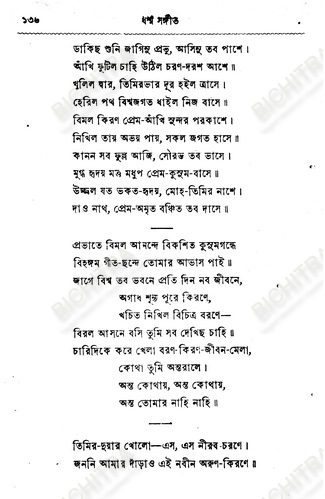 ১৩৬
ধর্ম্ম সঙ্গীত
ডাকিছ শুনি জাগিনু প্রভু, আসিনু তব পাশে।
আঁখি ফুটিল চাহি উঠিল চরণ-দরশ আশে॥
খুলিল দ্বার, তিমিরভার দূর হইল ত্রাসে।
হেরিল পথ বিশ্বজগত ধাইল নিজ বাসে॥
বিমল কিরণ প্রেম-আঁখি সুন্দর পরকাশে।
নিখিল তায় অভয় পায়, সকল জগত হাসে॥
কানন সব ফুল্ল আজি, সৌরভ তব ভাসে।
মুগ্ধ হৃদয় মত্ত মধুপ প্রেম-কুসুম-বাসে॥
উজ্জ্বল যত ভকত-হৃদয়, মোহ-তিমির নাশে।
দাও নাথ, প্রেম-অমৃত বঞ্চিত তব দাসে॥
প্রভাতে বিমল আনন্দে বিকশিত কুসুমগন্ধে
বিহঙ্গম গীত-ছন্দে তোমার আভাস পাই॥
জাগে বিশ্ব তব ভবনে প্রতি দিন নব জীবনে,
অগাধ শূন্য পূরে কিরণে,
খচিত নিখিল বিচিত্র বরণে—
বিরল আসনে বসি তুমি সব দেখিছ চাহি॥
চারিদিকে করে খেলা বরণ-কিরণ-জীবন-মেলা,
কোথা তুমি অন্তরালে।
অন্ত কোথায়, অন্ত কোথায়,
অন্ত তোমার নাহি নাহি॥
তিমির-দুয়ার খোলো—এস, এস নীরব-চরণে।
জননি আমার দাঁড়াও এই নবীন অরুণ-কিরণে॥
BICHITRA